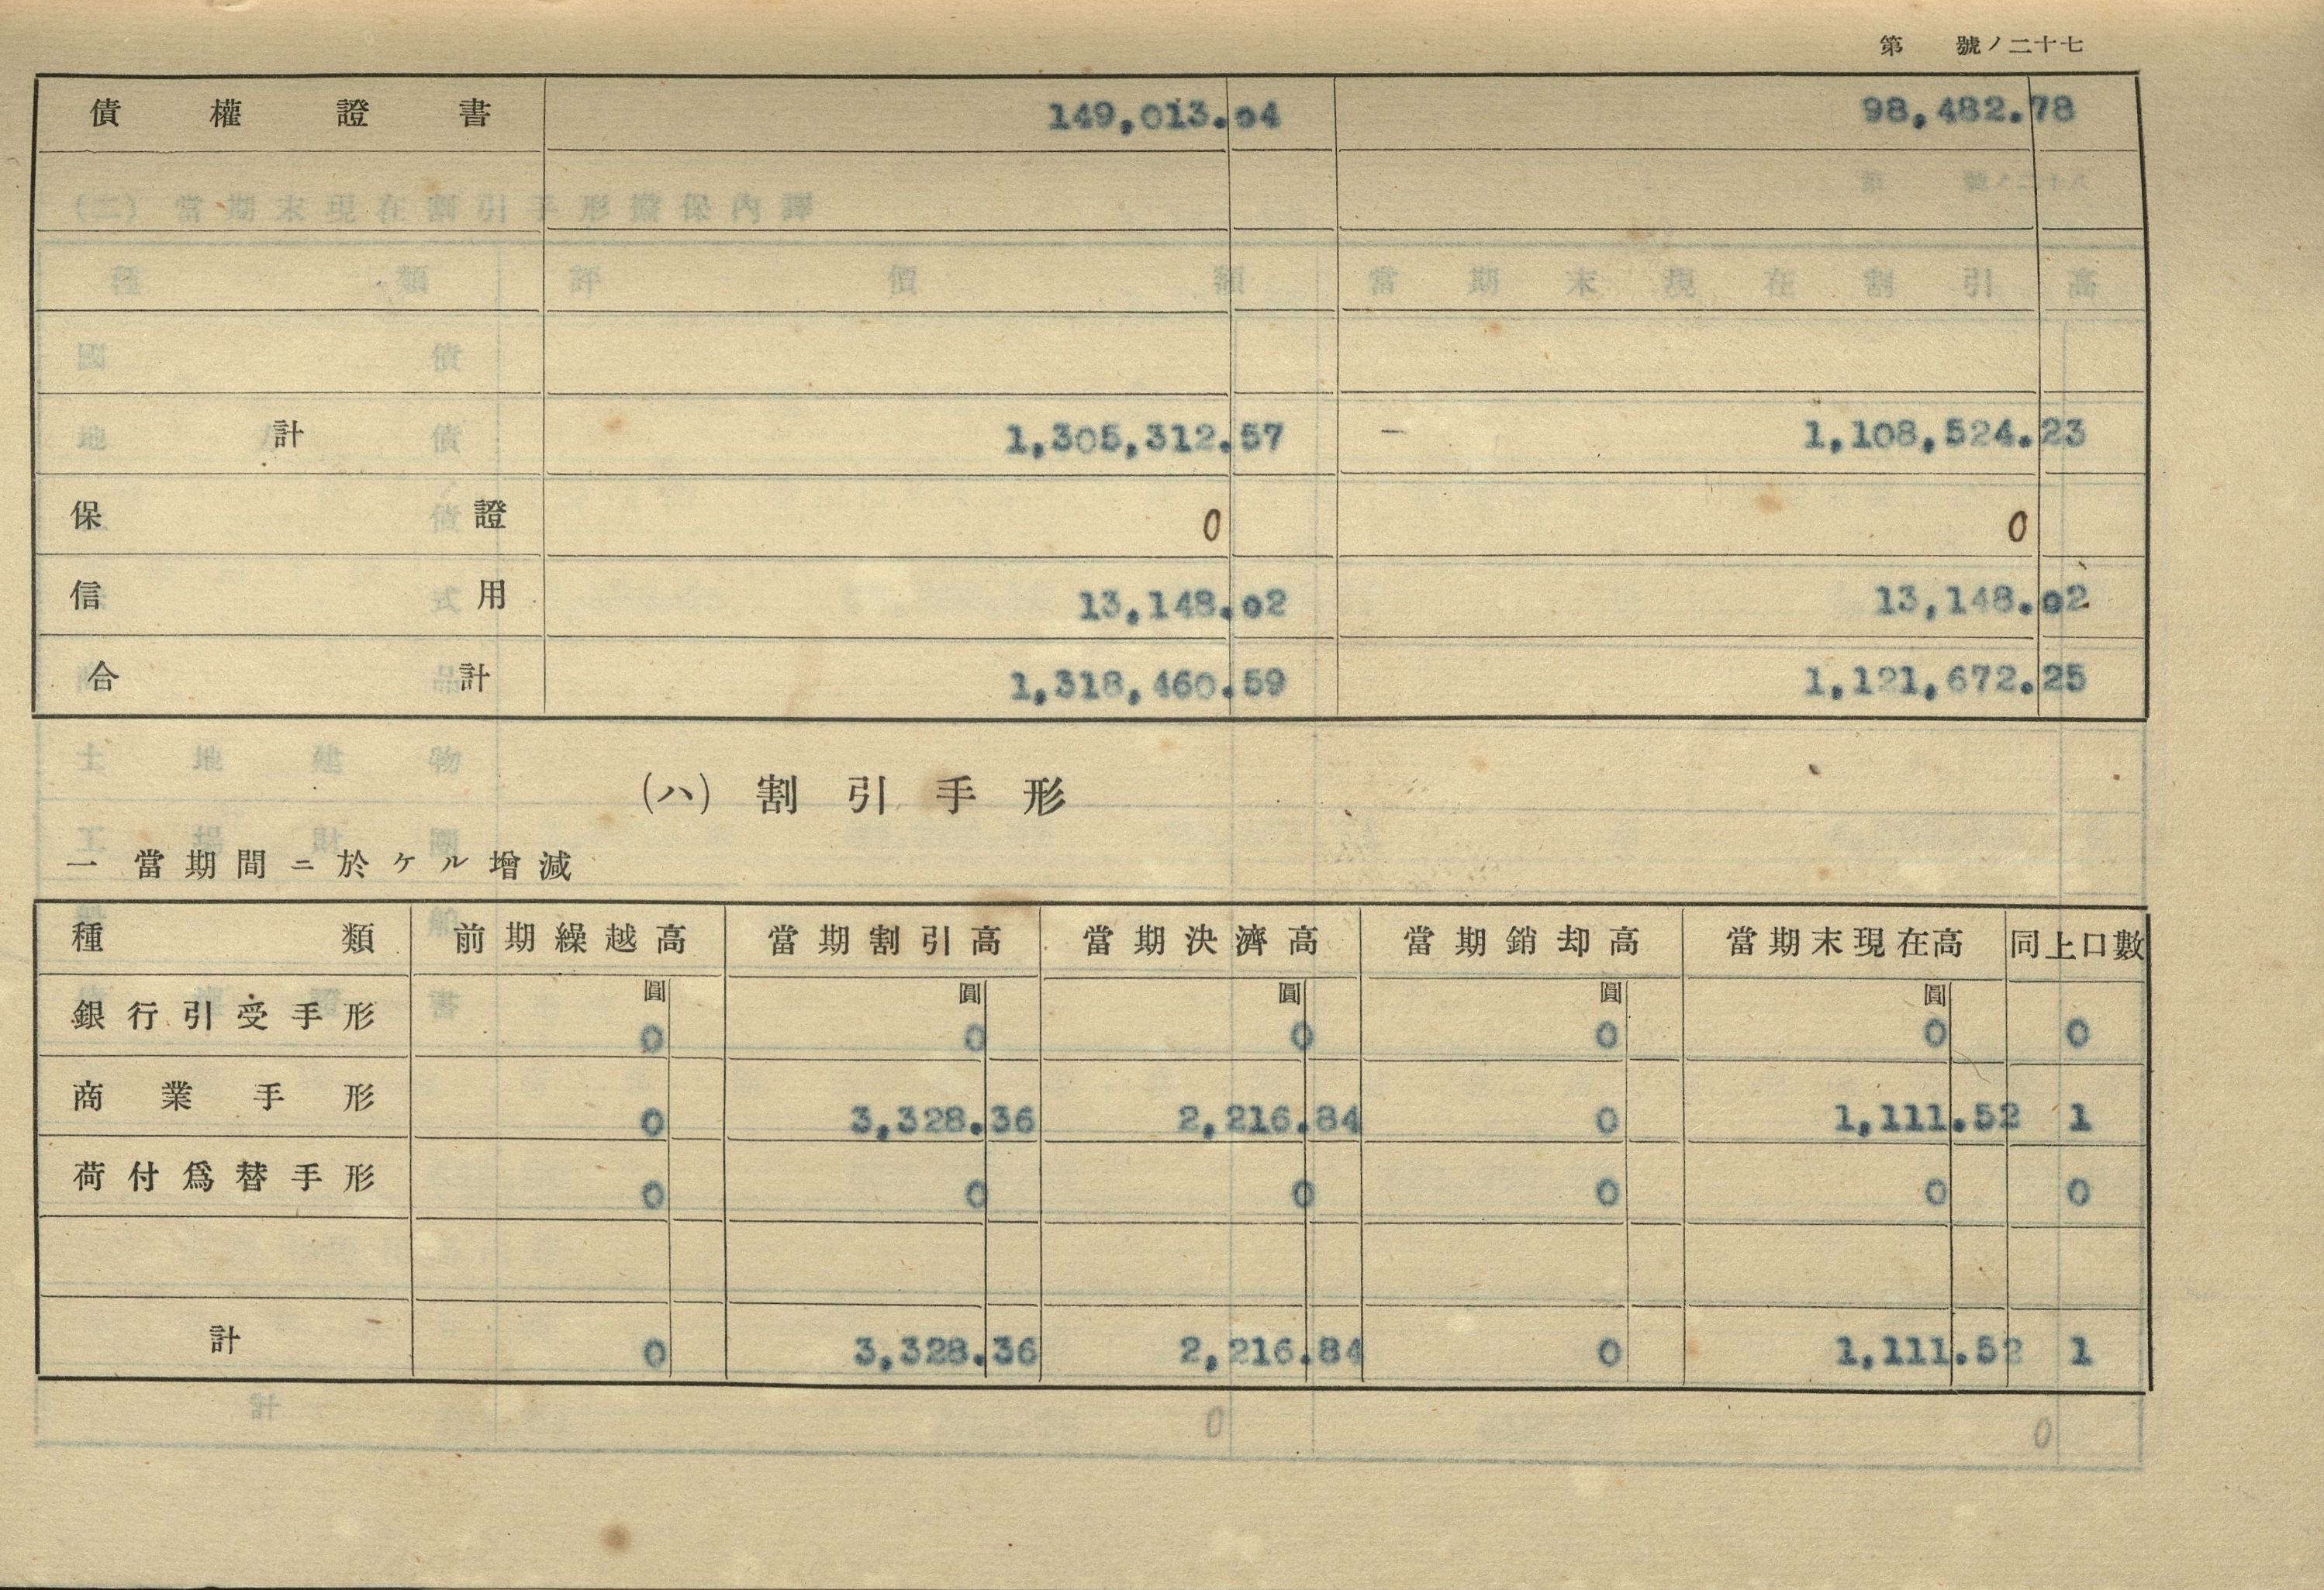 第 號ノ二十七
債權證書 149,013.04 98,482.78
計 1,305,312.57 1,108,524.23
保證 0 0
信用 13,148.02 13,148.02
合計 1,318,460.59 1,121,672.25
(ハ) 割引手形
一 當期間ニ於ケル增減
種類 前期繰越高 當期割引高 當期決濟高 當期銷却高 當期末現在高 同上口數
圓 圓 圓 圓 圓
銀行引受手形 0 0 0 0 0 0
商業手形 0 3,328.36 2,216.84 0 1,111.52 1
荷付爲替手形 0 0 0 0 0 0
計 0 3,328.36 2,216.84 0 1,111.52 1